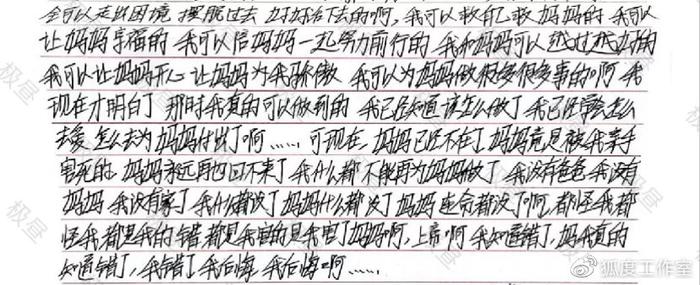 会可以走出困境 摆脱过去 好好活下去的啊,我可以救自己救妈妈的 我可以
让妈妈享福的 我可以陪妈妈一起努力前行的 我和妈妈可以越过越好的
我可以让妈妈开心 让妈妈为我骄傲 我可以为妈妈做很多很多事的啊 我
现在才明白了 那时我真的可以做到的 我已经知道该怎么做了 我已经学会怎么
去爱 怎么去为妈妈付出了啊……可现在 妈妈已经不在了 妈妈竟是被我亲手
害死的 妈妈永远再也回不来了 我什么都不能再为妈妈做了 我没有爸爸 我没有
妈妈 我没有家了 我什么都没了 妈妈什么都没了 妈妈连命都没了啊,都怪我 都
怪我 都是我的错 都是我害的 是我害了妈妈啊,上帝啊 我知道错了,妈 我真的
知道错了,我错了 我后悔 我后悔啊……
极昼
狐度工作室